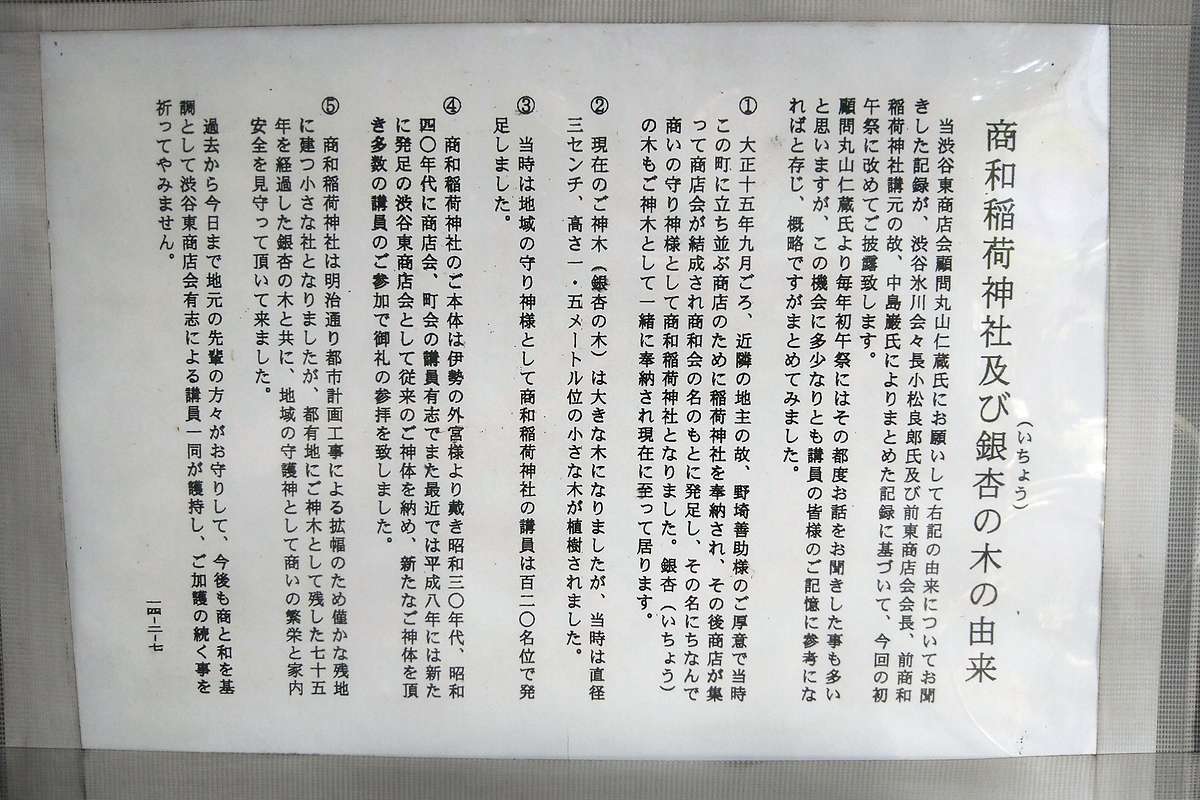 商和稲荷神社及び銀杏の木の由来
(いちょう)
当渋谷東商店会顧問丸山仁蔵氏にお願いして右記の由来についてお聞
きした記録が、渋谷氷川会々長小松良郎氏及び前東商店会会長、前商和
稲荷神社講元の故、中島巌氏によりまとめた記録に基づいて、今回の初
午祭に改めてご披露致します。
顧問丸山仁蔵氏より毎年初午祭にはその都度お話をお聞きした事も多い
と思いますが、この機会に多少なりとも講員の皆様のご記憶に参考にな
ればと存じ、概略ですがまとめてみました。
① 大正十五年九月ごろ、近隣の地主の故、野埼善助様のご厚意で当時
この町に立ち並ぶ商店のために稲荷神社を奉納され、その後商店が集
って商店会が結成され商和会の名のもとに発足し、その名にちなんで
商いの守り神様として商和稲荷神社となりました。銀杏(いちょう)
の木もご神木として一緒に奉納され現在に至って居ります。
② 現在のご神木(銀杏の木)は大きな木になりましたが、当時は直径
三センチ、高さ一・五メートル位の小さな木が植樹されました。
③ 当時は地域の守り神様として商和稲荷神社の講員は百二〇名位で発
足しました。
④ 商和稲荷神社のご本体は伊勢の外宮様より戴き昭和三〇年代、昭和
四〇年代に商店会、町会の講員有志でまた最近では平成八年には新た
に発足の渋谷東商店会として従来のご神体を納め、新たなご神体を頂
き多数の講員のご参加で御礼の参拝を致しました。
⑤ 商和稲荷神社は明治通り都市計画工事による拡幅のため僅かな残地
に建つ小さな社となりましたが、都有地にご神木として残した七十五
年を経過した銀杏の木と共に、地域の守護神として商いの繁栄と家内
安全を見守って頂いて来ました。
過去から今日まで地元の先輩の方々がお守りして、今後も商と和を基
調として渋谷東商店会有志による講員一同が護持し、ご加護の続く事を
祈ってやみません。
一四-二-七